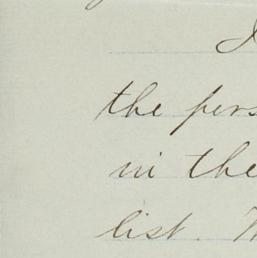 the pers
in the
list.